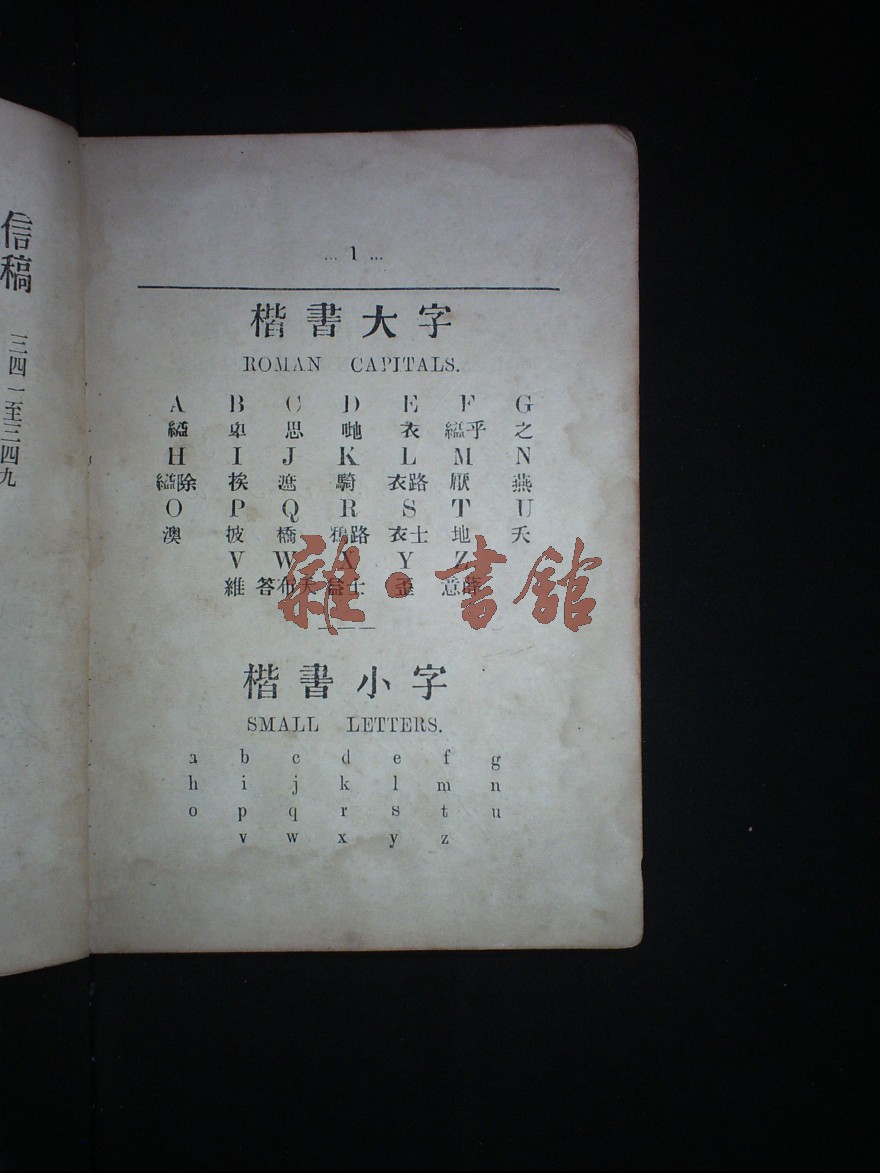 信稿 三四一至三四九
... 1 ...
楷書大字
ROMAN CAPITALS.
A B C D E F G
縊 卑 思 哋 衣 縊乎 之
H I J K L M N
縊除 挨 遮 騎 衣路 厭 燕
O P Q R S T U
澳 披 橋 鴉路 衣士 地 夭
V W X Y Z
維 答布夭 益士 歪 意
雜·書館
楷書小字
SMALL LETTERS.
a b c d e f g
h i j k l m n
o p q r s t u
v w x y z